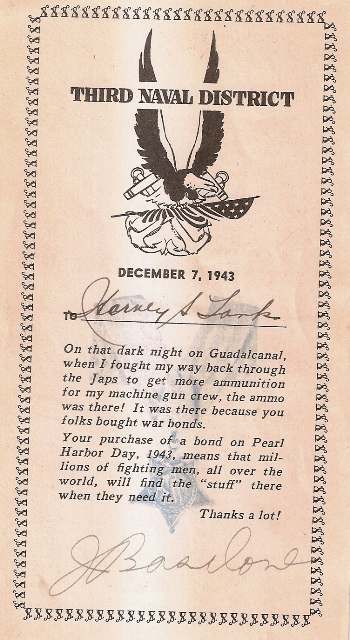 THIRD NAVAL DISTRICT
DECEMBER 7, 1943
TO Harvey S
On that dark night on Guadalcanal,
when I fought my way back through
the Japs to get more ammunition
for my machine gun crew, the ammo
was there! It was there because you
folks bought war bonds.
Your purchase of a bond on Pearl
Harbor Day, 1943, means that mil-
lions of fighting men, all over the
world, will find the "stuff" there
when they need it.
Thanks a lot!
J Basilone